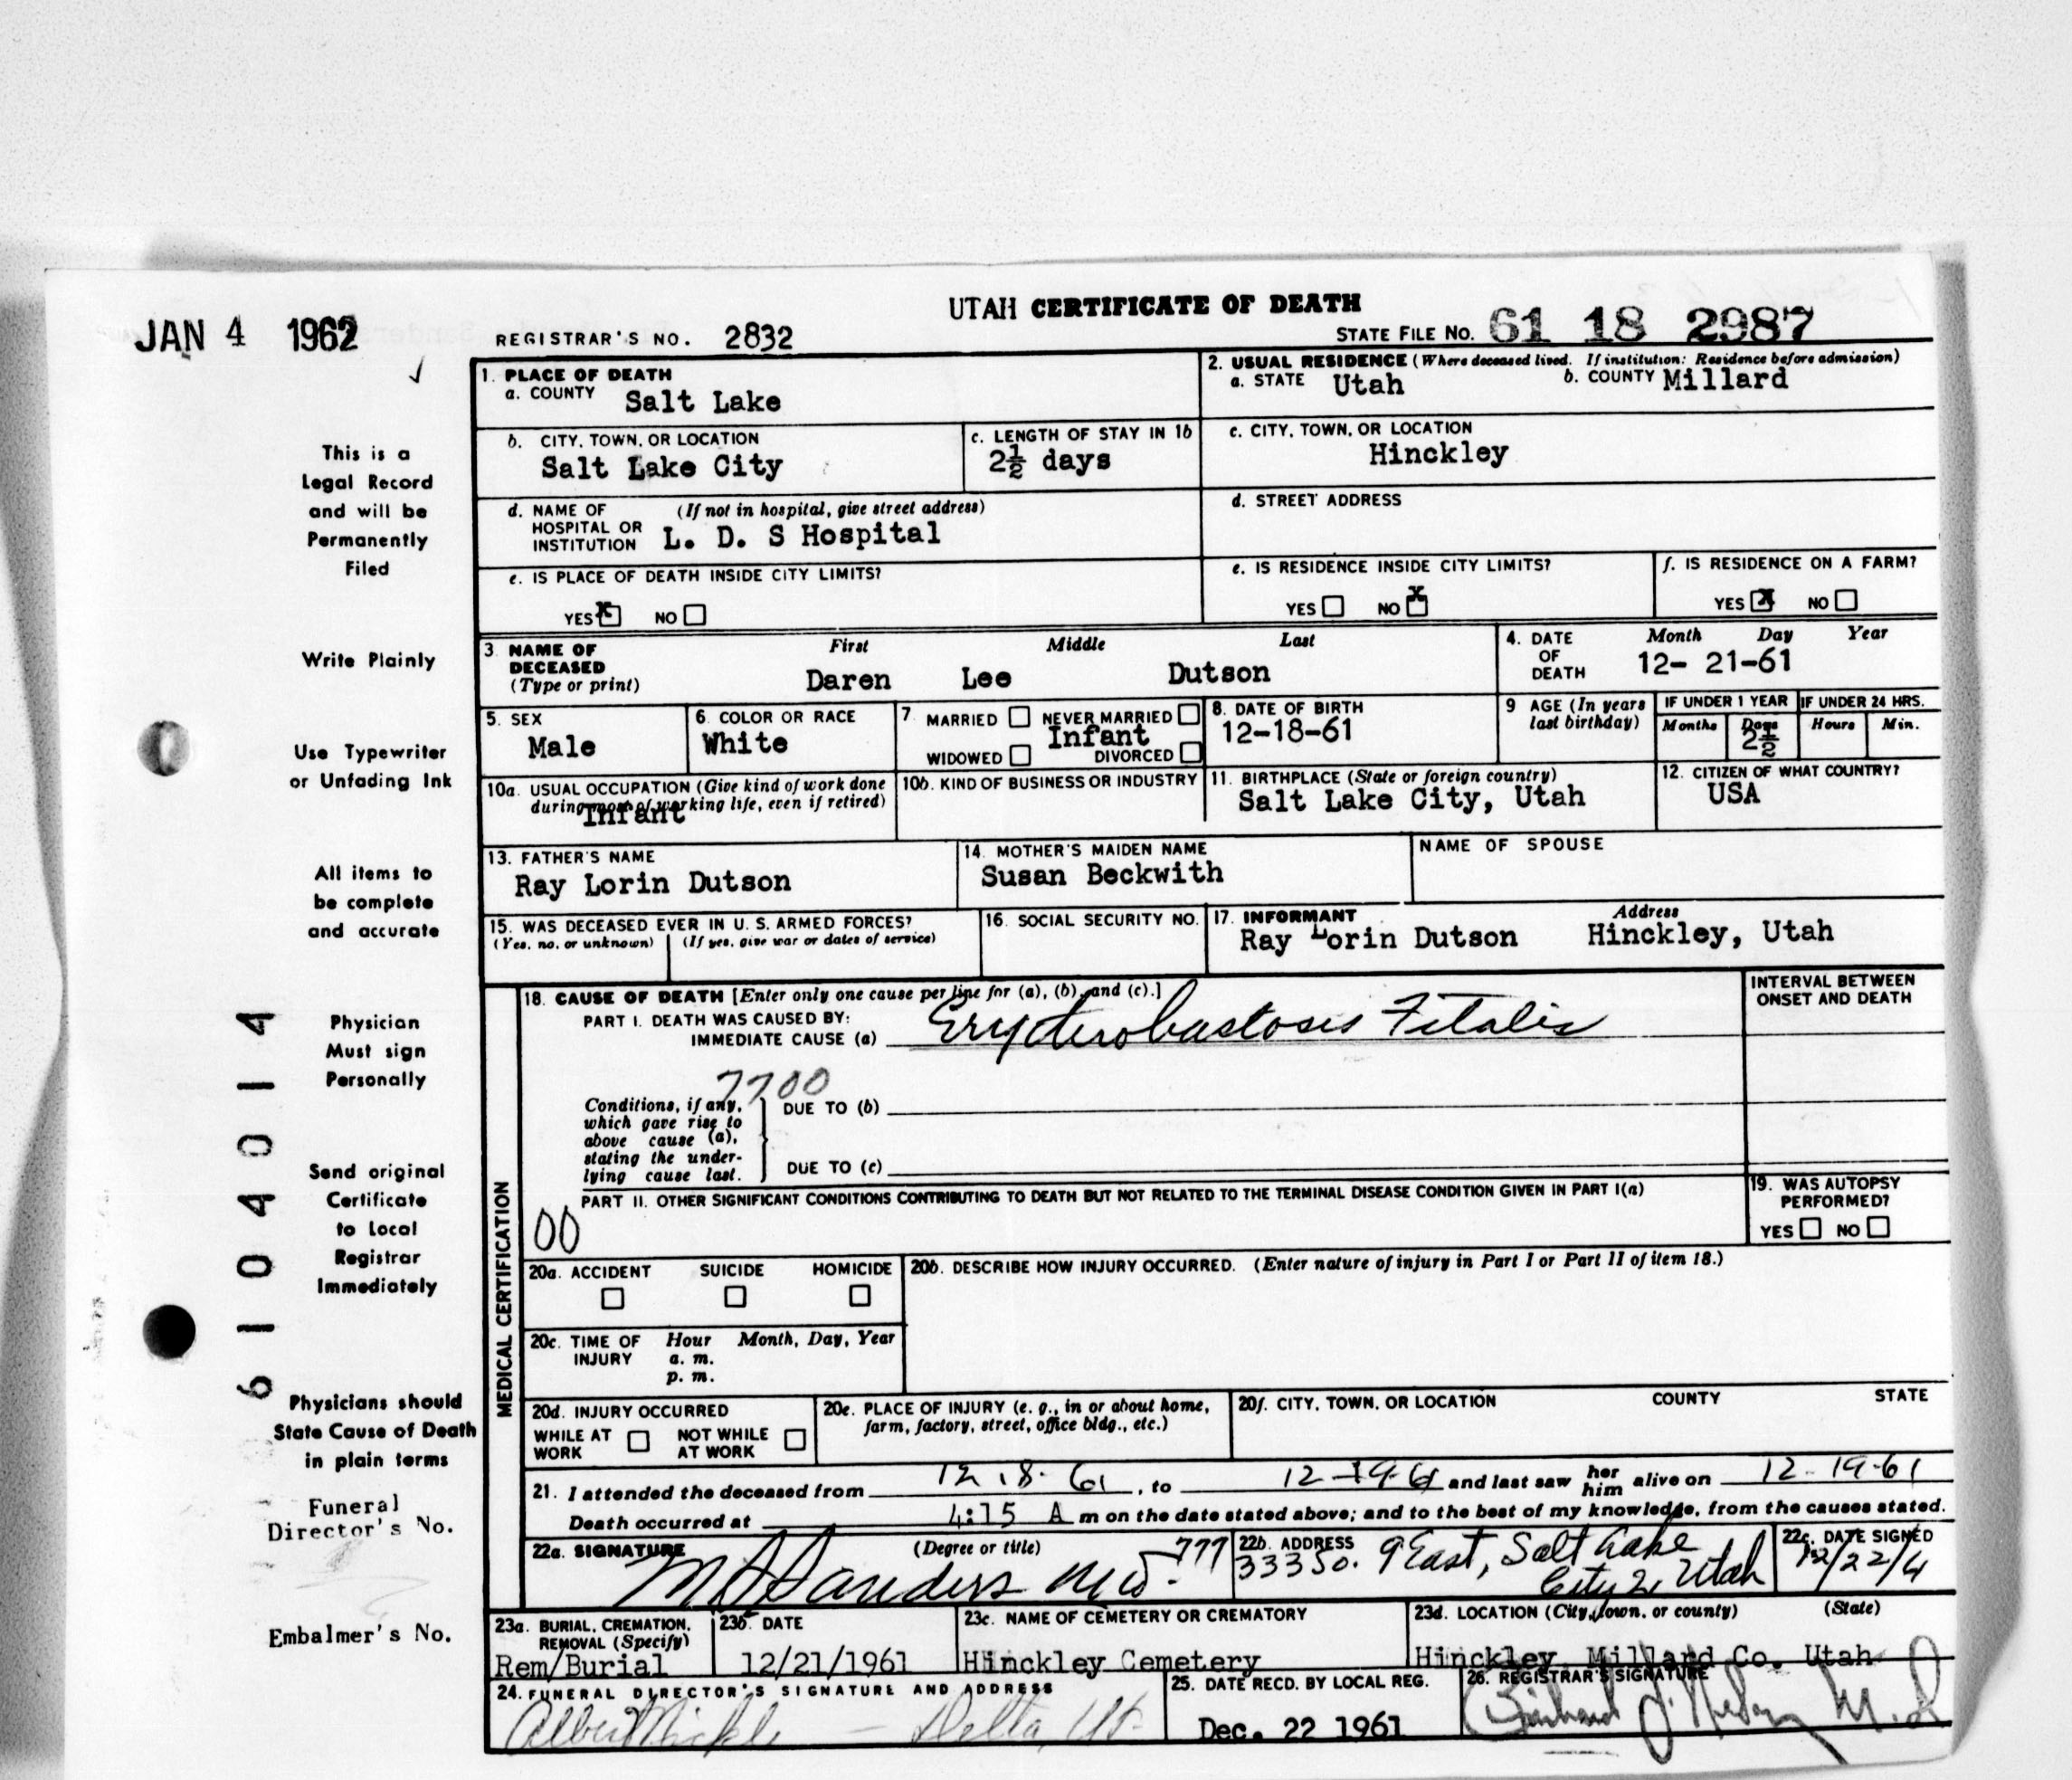 UTAH CERTIFICATE OF DEATH
JAN 4 1962
REGISTRAR'S NO. 2832
STATE FILE NO. 61 18 2987
1. PLACE OF DEATH
a. COUNTY Salt Lake
2. USUAL RESIDENCE (Where deceased lived. If institution: Residence before admission)
a. STATE Utah b. COUNTY Millard
b. CITY, TOWN, OR LOCATION
Salt Lake City
c. LENGTH OF STAY IN 1b
2½ days
c. CITY, TOWN, OR LOCATION
Hinckley
d. NAME OF HOSPITAL OR INSTITUTION (If not in hospital, give street address)
L. D. S Hospital
d. STREET ADDRESS
e. IS PLACE OF DEATH INSIDE CITY LIMITS?
YES X NO
e. IS RESIDENCE INSIDE CITY LIMITS?
YES NO X
f. IS RESIDENCE ON A FARM?
YES X NO
3. NAME OF DECEASED (Type or print)
First Middle Last
Daren Lee Dutson
4. DATE OF DEATH
Month Day Year
12- 21-61
5. SEX
Male
6. COLOR OR RACE
White
7. MARRIED NEVER MARRIED
Infant
WIDOWED DIVORCED
8. DATE OF BIRTH
12-18-61
9 AGE (In years last birthday)
IF UNDER 1 YEAR
Months Days
2½
IF UNDER 24 HRS.
Hours Min.
10a. USUAL OCCUPATION (Give kind of work done during most of working life, even if retired)
Infant
10b. KIND OF BUSINESS OR INDUSTRY
11. BIRTHPLACE (State or foreign country)
Salt Lake City, Utah
12. CITIZEN OF WHAT COUNTRY?
USA
13. FATHER'S NAME
Ray Lorin Dutson
14. MOTHER'S MAIDEN NAME
Susan Beckwith
NAME OF SPOUSE
15. WAS DECEASED EVER IN U. S. ARMED FORCES?
(Yes, no, or unknown) (If yes, give war or dates of service)
16. SOCIAL SECURITY NO.
17. INFORMANT Address
Ray Lorin Dutson Hinckley, Utah
MEDICAL CERTIFICATION
18. CAUSE OF DEATH [Enter only one cause per line for (a), (b), and (c).]
PART I. DEATH WAS CAUSED BY:
IMMEDIATE CAUSE (a) Erythroblastosis Fetalis
INTERVAL BETWEEN
ONSET AND DEATH
7700
Conditions, if any,
which gave rise to
above cause (a),
stating the under-
lying cause last.
DUE TO (b)
DUE TO (c)
PART II. OTHER SIGNIFICANT CONDITIONS CONTRIBUTING TO DEATH BUT NOT RELATED TO THE TERMINAL DISEASE CONDITION GIVEN IN PART I(a)
00
19. WAS AUTOPSY PERFORMED?
YES NO
20a. ACCIDENT SUICIDE HOMICIDE
20b. DESCRIBE HOW INJURY OCCURRED. (Enter nature of injury in Part I or Part II of item 18.)
20c. TIME OF INJURY Hour Month, Day, Year
a. m.
p. m.
20d. INJURY OCCURRED
WHILE AT WORK NOT WHILE AT WORK
20e. PLACE OF INJURY (e. g., in or about home, farm, factory, street, office bldg., etc.)
20f. CITY, TOWN, OR LOCATION COUNTY STATE
21. I attended the deceased from 12 18- 61, to 12-19-61 and last saw her him alive on 12-19-61
Death occurred at 4:15 A m on the date stated above; and to the best of my knowledge, from the causes stated.
22a. SIGNATURE (Degree or title)
Sanders MD. 777
22b. ADDRESS
333 So. 9 East, Salt Lake
City 2, Utah
22c. DATE SIGNED
12/22/61
23a. BURIAL, CREMATION, REMOVAL (Specify)
Rem/Burial
23b. DATE
12/21/1961
23c. NAME OF CEMETERY OR CREMATORY
Hinckley Cemetery
23d. LOCATION (City, town, or county) (State)
Hinckley Millard Co. Utah
24. FUNERAL DIRECTOR'S SIGNATURE AND ADDRESS
Albert Nickle — Delta, Ut.
25. DATE RECD. BY LOCAL REG.
Dec. 22 1961
26. REGISTRAR'S SIGNATURE
This is a
Legal Record
and will be
Permanently
Filed
Write Plainly
Use Typewriter
or Unfading Ink
All items to
be complete
and accurate
Physician
Must sign
Personally
Send original
Certificate
to Local
Registrar
Immediately
Physicians should
State Cause of Death
in plain terms
Funeral
Director's No.
Embalmer's No.
6104014